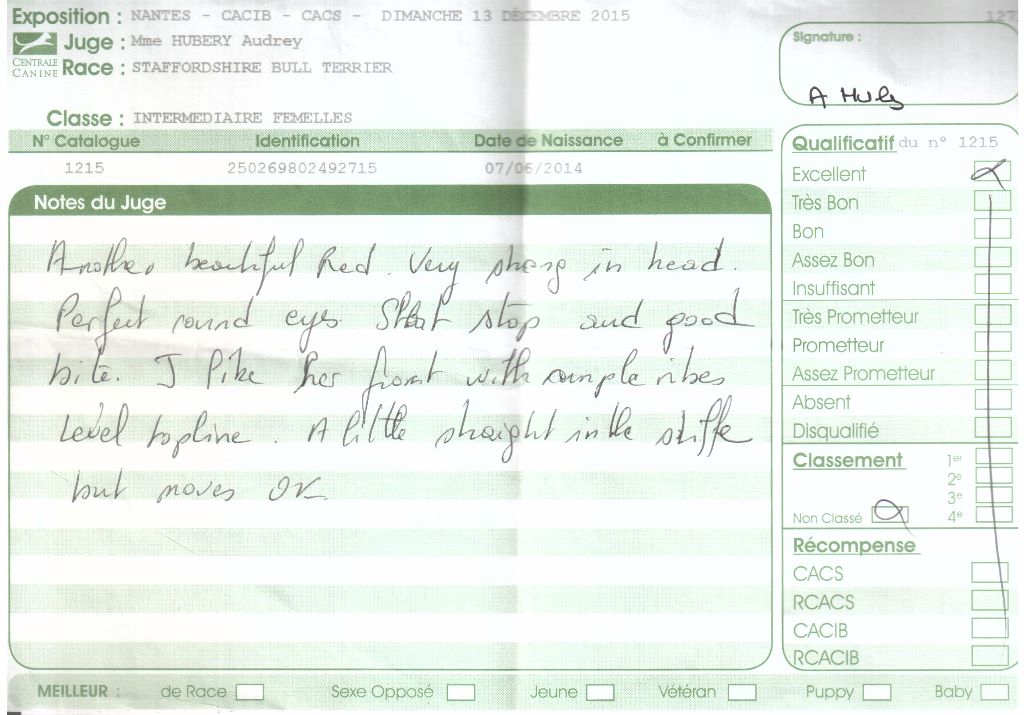 Exposition : NANTES - CACIB - CACS - DIMANCHE 13 DÉCEMBRE 2015
Juge : Mme HUBERY Audrey
CENTRALE CANINE
Race : STAFFORDSHIRE BULL TERRIER
Signature :
Classe : INTERMEDIAIRE FEMELLES
N° Catalogue Identification Date de Naissance à Confirmer
1215 250269802492715 07/06/2014
Notes du Juge
Another beautiful Red. Very strong in head.
Perfect round eyes Short stop and good
bite. I like her front with ample ribes
Level topline. A little straight in the stiffe
but moves OK
Qualificatif du n° 1215
Excellent
Très Bon
Bon
Assez Bon
Insuffisant
Très Prometteur
Prometteur
Assez Prometteur
Absent
Disqualifié
Classement 1er
2e
3e
Non Classé 4e
Récompense
CACS
RCACS
CACIB
RCACIB
MEILLEUR : de Race Sexe Opposé Jeune Vétéran Puppy Baby